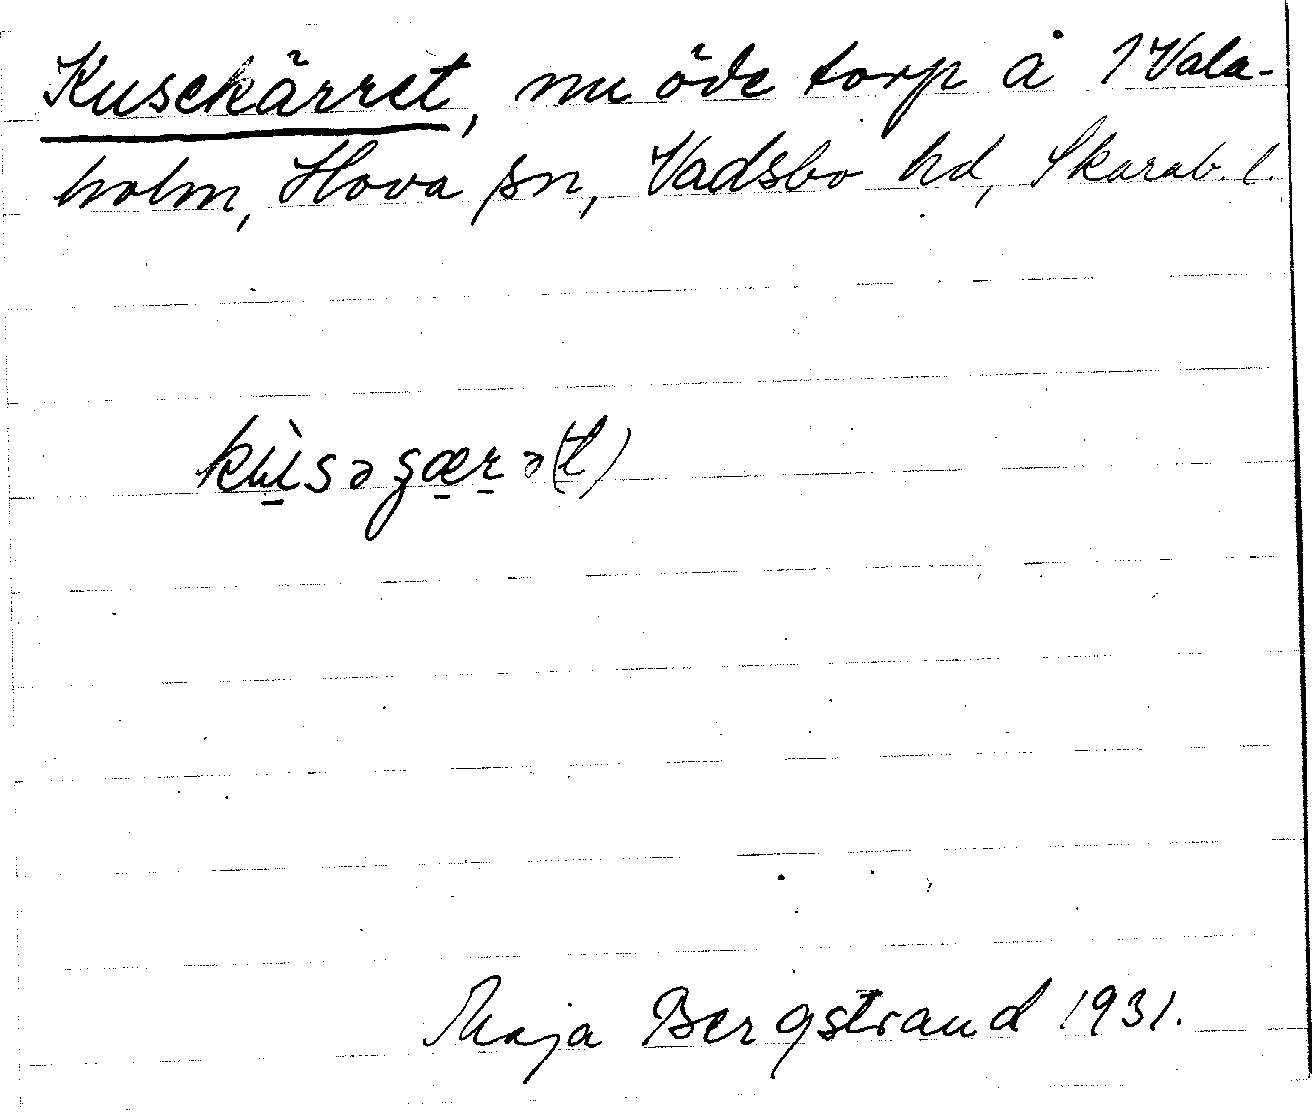 Kusekärret, nu öde torp å 1 Vala-
holm, Hova sn, Vadsbo hd, Skarab. l.
kùsəgærə(t)
Maja Bergstrand 1931.